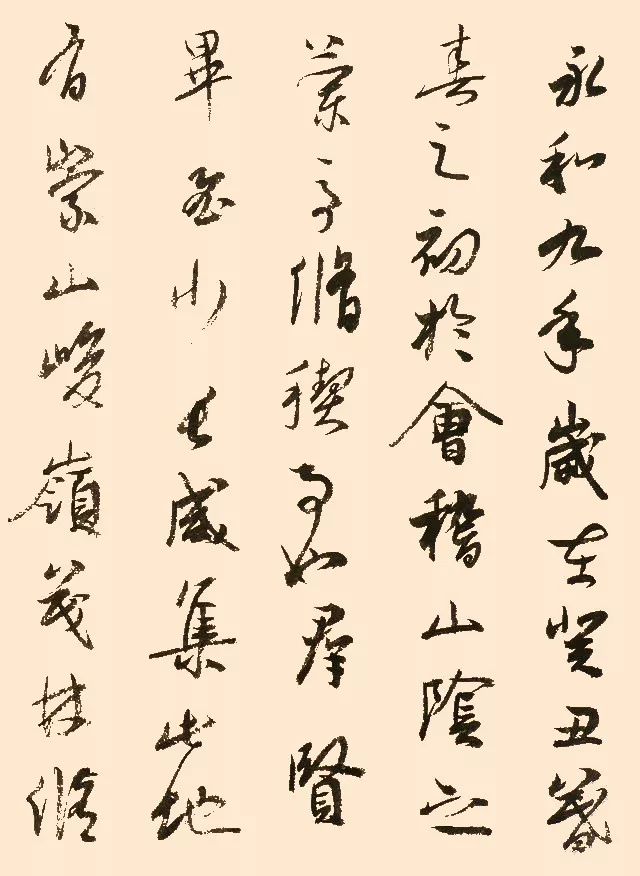 永和九年歲在癸丑暮
春之初於會稽山陰之
蘭亭脩稧事也羣賢
畢至少長咸集此地
有崇山峻嶺茂林脩